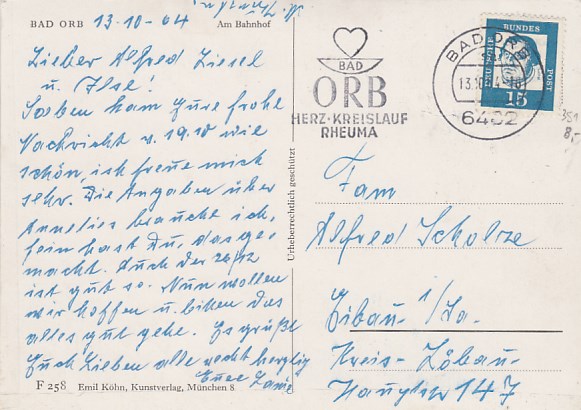 BAD ORB 13-10-64 Am Bahnhof
Lieber Alfred Ziesel
u. Ilse!
Soeben kam Eure frohe
Nachricht v. 19.10 wie
schön, ich freue mich
sehr. Die Angaben über
Annelies brauche ich,
fein hast Du, das ge-
macht. Auch der 26/12
ist gut so. Nun wollen
wir hoffen u. bitten das
alles gut gehe. Es grüße
Euch Lieben alle recht herzlig
Eure
F 258 Emil Köhn, Kunstverlag, München 8
Urheberrechtlich geschützt
BAD
ORB
HERZ·KREISLAUF
RHEUMA
BAD ORB
13.10.64
6482
DEUTSCHE BUNDESPOST
15
351
8,-
Fam
Alfred Scholze
Eibau 1/Sa.
Kreis-Löbau-
Hauptstr 147